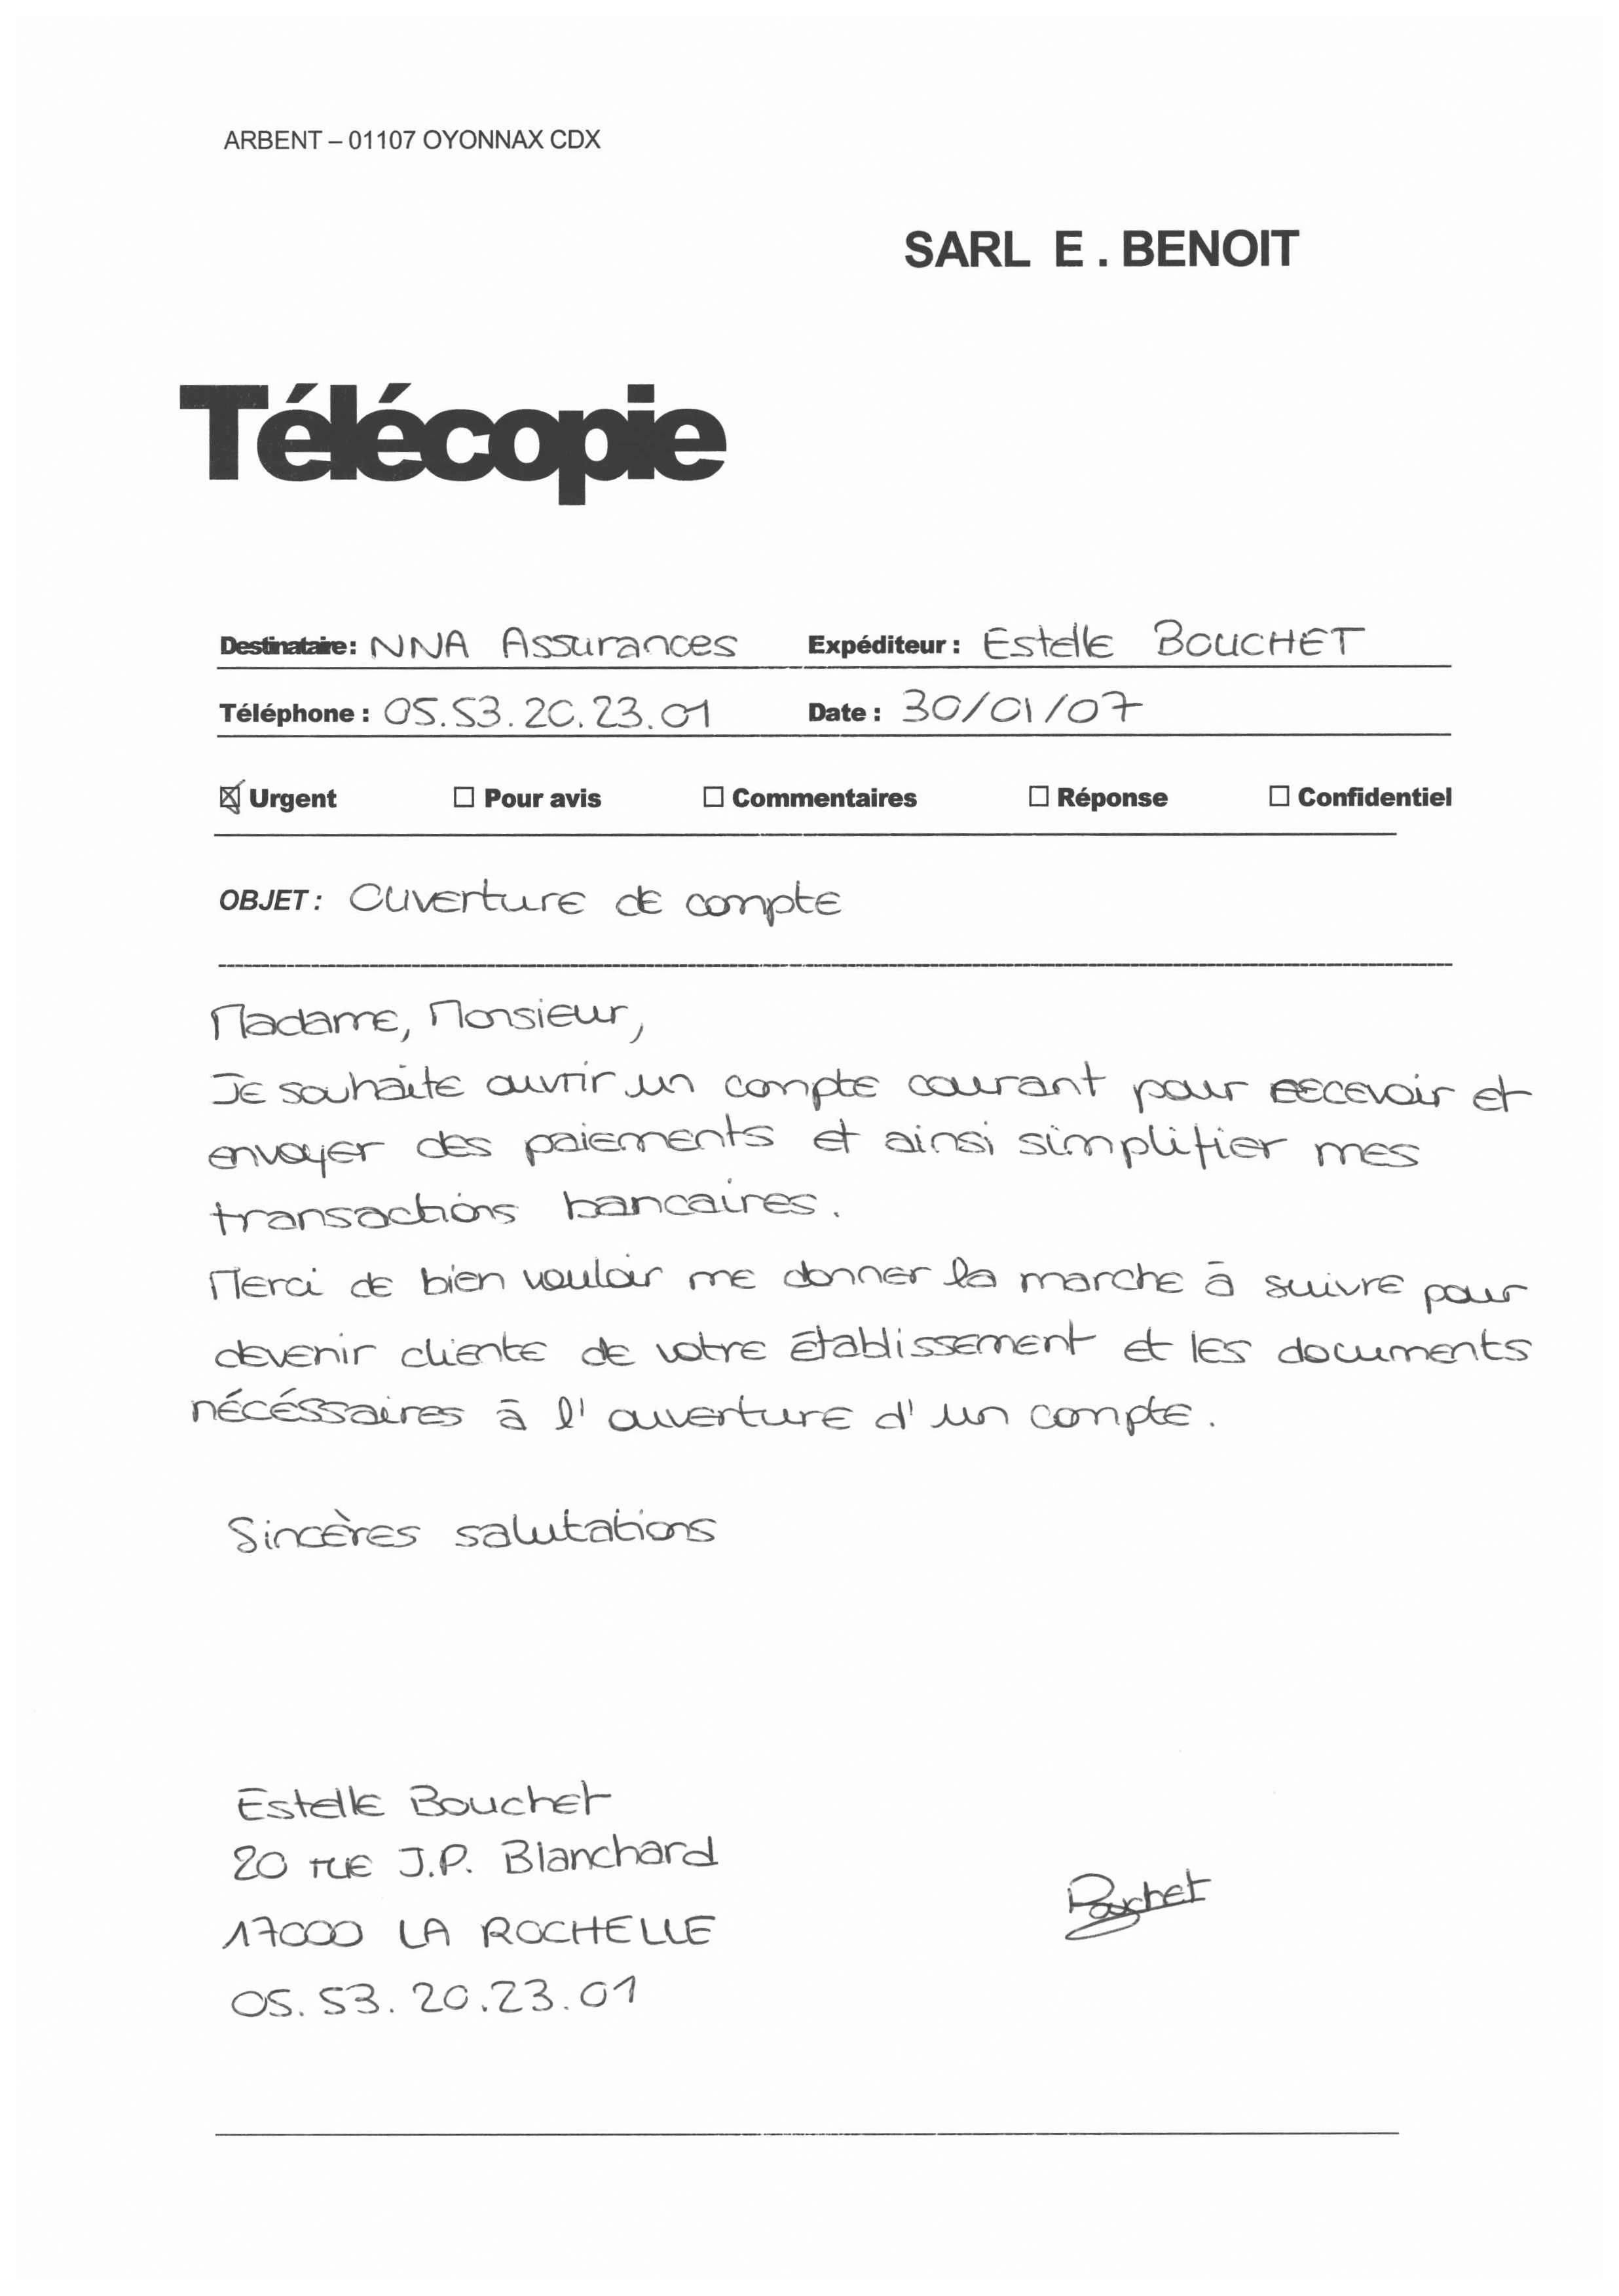 ARBENT – 01107 OYONNAX CDX
SARL E . BENOIT
Télécopie
Destinataire : NNA Assurances Expéditeur : Estelle BOUCHET
Téléphone : 05.53.20.23.01 Date : 30/01/07
☒ Urgent ☐ Pour avis ☐ Commentaires ☐ Réponse ☐ Confidentiel
OBJET : Ouverture de compte
Madame, Monsieur,
Je souhaite ouvrir un compte courant pour recevoir et
envoyer des paiements et ainsi simplifier mes
transactions bancaires.
Merci de bien vouloir me donner la marche à suivre pour
devenir cliente de votre établissement et les documents
nécéssaires à l'ouverture d'un compte.
Sincères salutations
Estelle Bouchet
20 rue J.P. Blanchard
17000 LA ROCHELLE
Bouchet
05.53.20.23.01